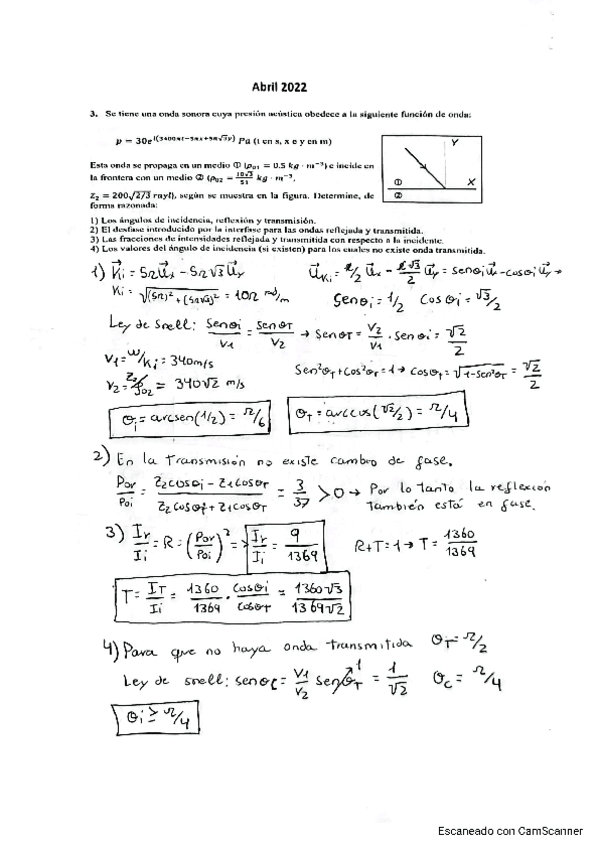 Abril 2022
3. Se tiene una onda sonora cuya presión acústica obedece a la siguiente función de onda:
p = 30e^{i(3400πt−5πx+5π√3y)} Pa (t en s, x e y en m)
Esta onda se propaga en un medio ① (ρ₀₁ = 0.5 kg · m⁻³) e incide en
la frontera con un medio ② (ρ₀₂ = 10√3/51 kg · m⁻³,
Z₂ = 200√(2/3) rayl), según se muestra en la figura. Determine, de
forma razonada:
Y
① X
②
1) Los ángulos de incidencia, reflexión y transmisión.
2) El desfase introducido por la interfase para las ondas reflejada y transmitida.
3) Las fracciones de intensidades reflejada y transmitida con respecto a la incidente.
4) Los valores del ángulo de incidencia (si existen) para los cuales no existe onda transmitida.
1) K⃗i = 5π u⃗x − 5π√3 u⃗y u⃗Ki = 1/2 u⃗x − √3/2 u⃗y = senθi u⃗x − cosθi u⃗y →
Ki = √((5π)² + (5π√3)²) = 10π rad/m senθi = 1/2 cosθi = √3/2
Ley de Snell: senθi/V1 = senθT/V2 → senθT = V2/V1 · senθi = √2/2
V1 = ω/Ki = 340 m/s
V2 = Z2/ρ02 = 340√2 m/s sen²θT + cos²θT = 1 → cosθT = √(1−sen²θT) = √2/2
θi = arcsen(1/2) = π/6 θT = arccos(√2/2) = π/4
2) En la transmisión no existe cambio de fase.
Por/Poi = (Z2cosθi − Z1cosθT)/(Z2cosθi + Z1cosθT) = 3/37 > 0 → Por lo tanto la reflexión
también está en fase.
3) Ir/Ii = R = (Por/Poi)² ⇒ Ir/Ii = 9/1369 R+T = 1 → T = 1360/1369
T = IT/Ii = 1360/1369 · cosθi/cosθT = 1360√3/1369√2
4) Para que no haya onda transmitida θT = π/2
Ley de snell: senθc = V1/V2 senθT 1 = 1/√2 θc = π/4
θi ≥ π/4
Escaneado con CamScanner